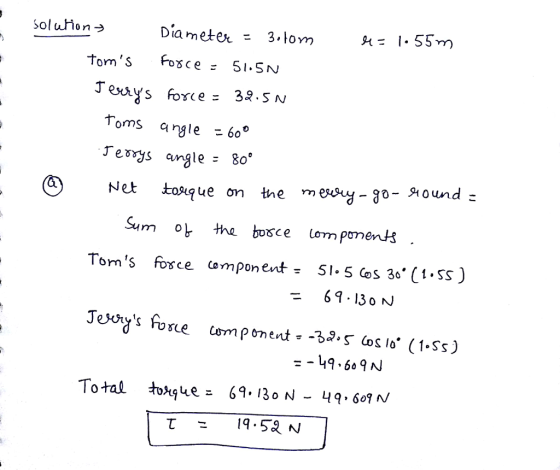 Solution → Diameter = 3.10m r = 1.55m
Tom's force = 51.5N
Jerry's force = 32.5N
Toms angle = 60°
Jerrys angle = 80°
(a) Net torque on the merry-go-round =
Sum of the force components.
Tom's force component = 51.5 Cos 30° (1.55)
= 69.130 N
Jerry's force component = -32.5 Cos 10° (1.55)
= -49.609 N
Total torque = 69.130 N - 49.609 N
τ = 19.52 N